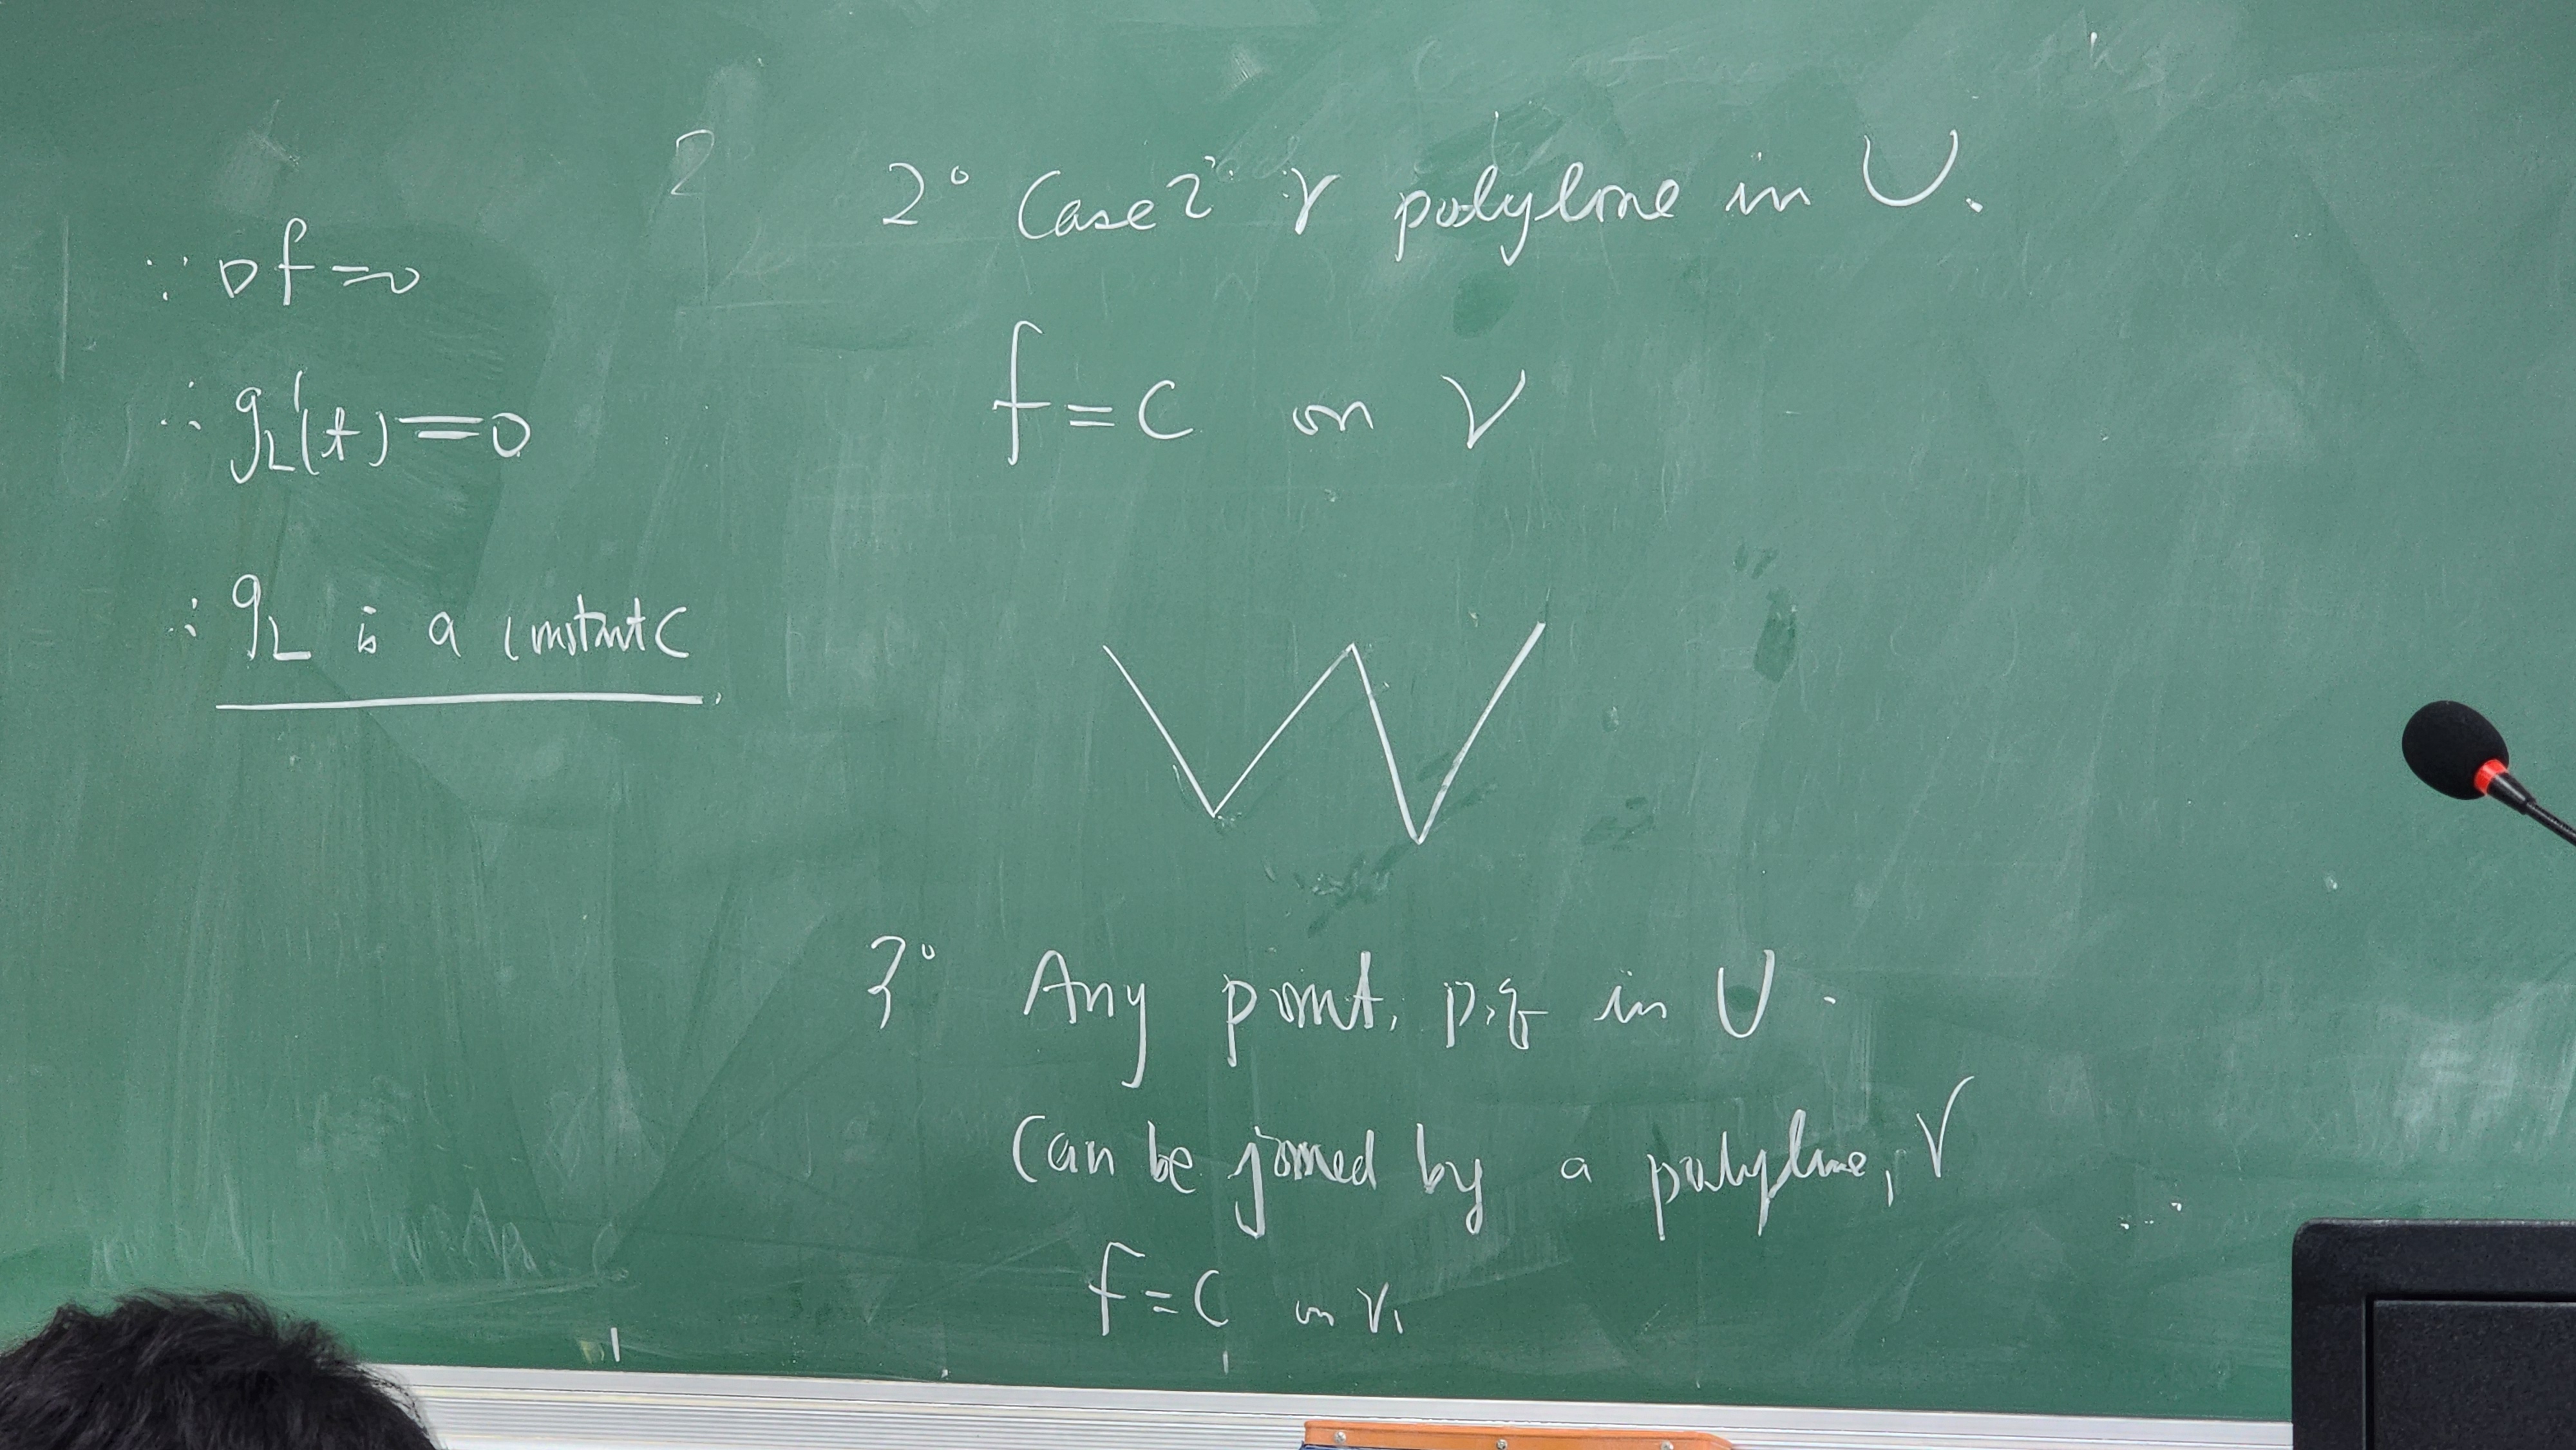 ∵ ∇f=0
∴ g_L'(t)=0
∴ g_L is a constant C
2° Case 2 γ polyline in U.
f = C on γ
3° Any point, p,q in U.
Can be joined by a polyline, γ
f = C on γ,